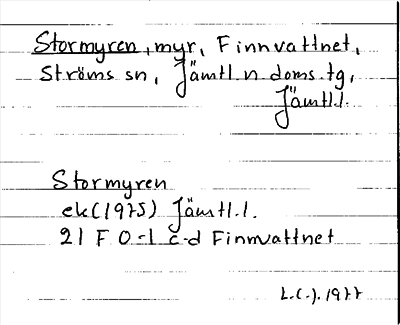 Stormyren, myr, Finnvattnet,
Ströms sn, Jämtl. n. doms.tg,
Jämtl.l.
Stormyren
ek (1975) Jämtl.l.
21 F 0-1 c-d Finnvattnet
1977